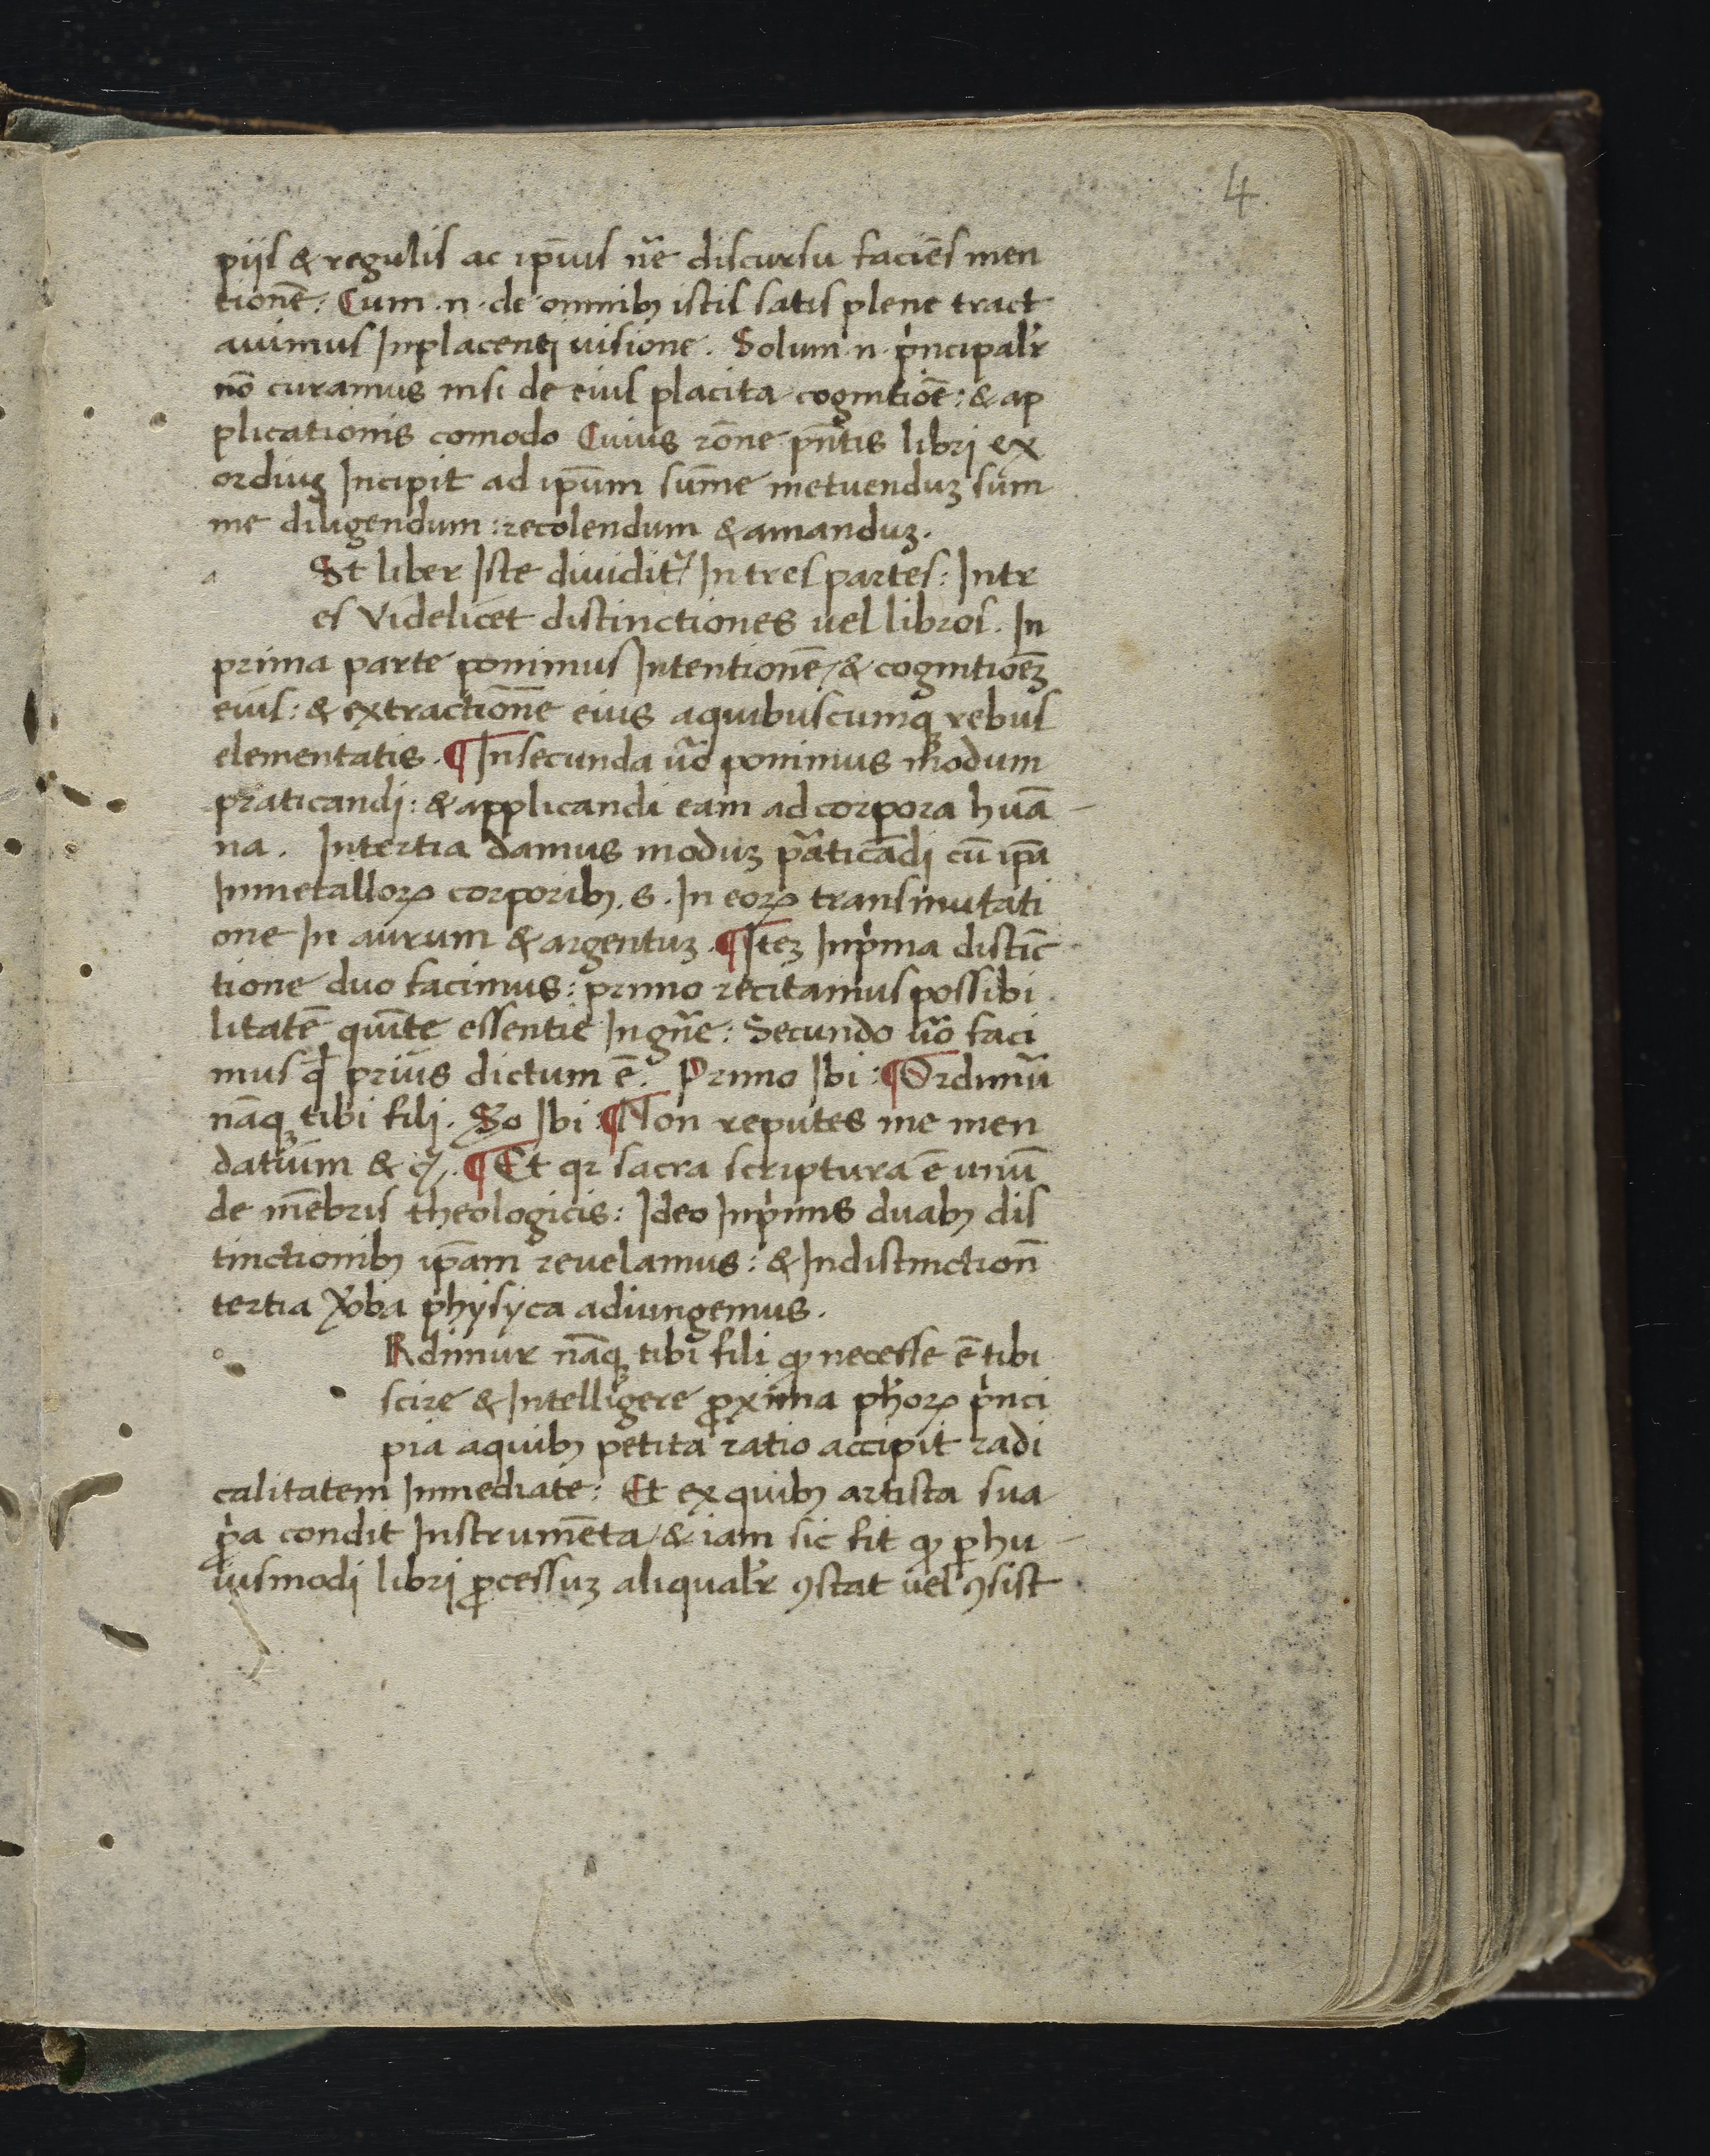 4
piis & regulis ac ip̄ius n̄re discursu faciēs men
tionē: Cum .n. de omnibꝫ istis satis plene tract
auimus In placenti uisione. Solum .n. pⁱncipalr̄
nō curamus nisi de eius placita cognitiōe: & ap
plicationis comodo Cuius rōne pn̄tis libri ex
ordiuꝫ Incipit ad ip̄um sūme metuenduꝫ sum
me diligendum: recolendum & amanduꝫ.
a St liber Iste diuidit᷑ In tres partes: In tr
es Videlicet distinctiones uel libros. In
prima parte ponimus Intentionē / & cognitiōeꝫ
eius: & extractiōne eius aquibuscumqꝫ rebus
elementatis. ¶ In secunda u͞o ponimus modum
praticandi: & applicandi eam ad corpora huā
na. In tertia damus moduꝫ praticādi cū ip̄a
In metalloꝝ corporibꝫ .s. In eoꝝ transmutati
one In aurum & argentuꝫ. ¶ Iteꝫ In pⁱma distīc
tione duo facimus: primo recitamus possibi
litatē quīte essentie In gn̄e: Secundo u͞o faci
mus qđ prius dictum ē. Primo Ibi: ¶ Ordimū
nāqꝫ tibi fili. So Ibi: ¶ Non reputes me men
datium & cꝫ. ¶ Et qꝛ sacra scriptura ē unū
de mēbris theologicis: Ideo In pⁱmis duabꝫ dis
tinctionibꝫ ip̄am reuelamus: & In distinctiōn
tertia ꝟba physyca adiungemus.
o Rdimur nāqꝫ tibi fili ꝙ necesse ē tibi
scire & Intelligere ꝓxima ph̄oꝝ pⁱnci
pia aquibꝫ petita ratio accipit radi
calitatem Inmediate: Et ex quibꝫ artista sua
ꝓⁱa condit Instrumēta / & iam sic fit ꝙ ꝑ hu
iusmodi libri ꝓcessuꝫ aliqualr̄ ꝯstat uel ꝯsist